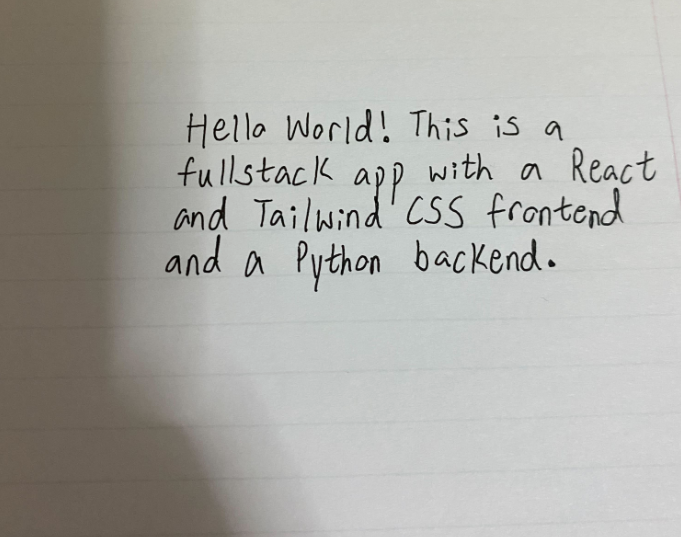 Hello World! This is a
fullstack app with a React
and Tailwind CSS frontend
and a Python backend.